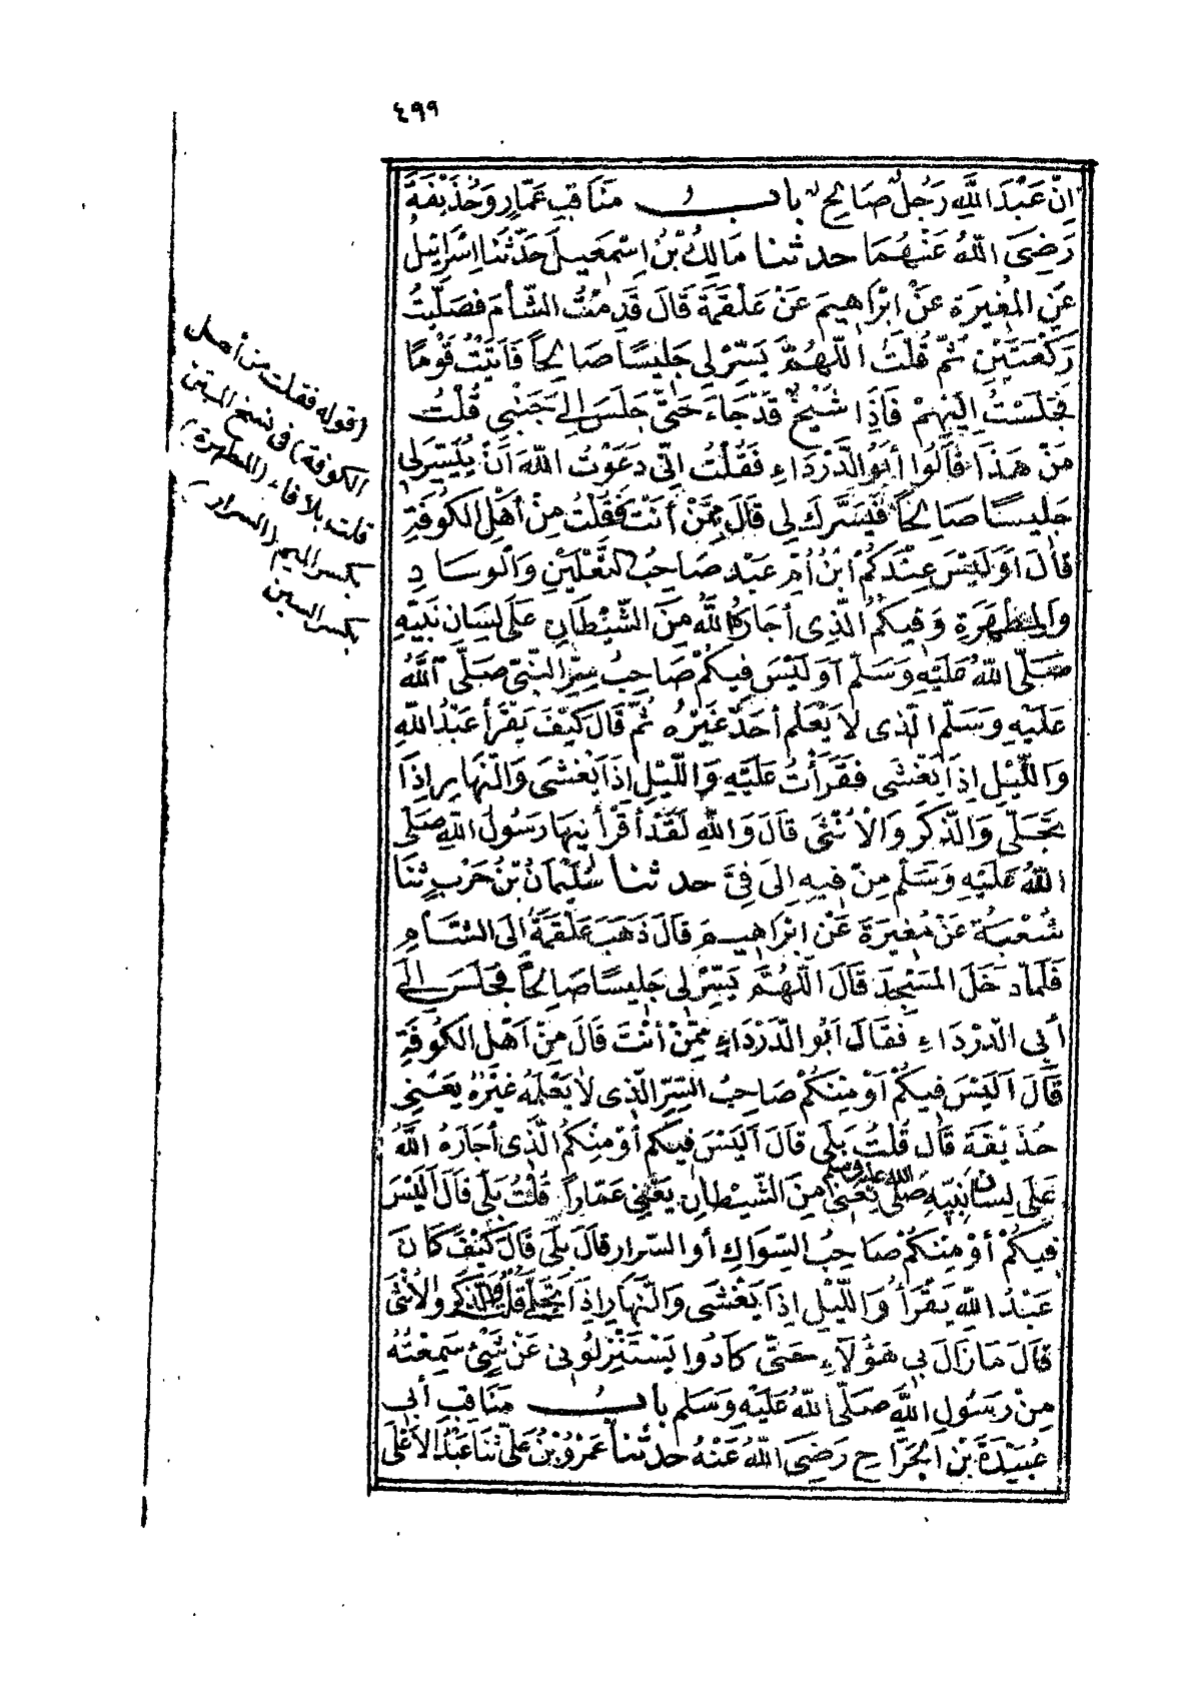 ٤٩٩
اِنَّ عَبْدَ اللَّهِ رَجُلٌ صَالِحٌ بابُ مَنَاقِبِ عَمَّارٍ وَحُذَيْفَةَ
رَضِىَ اللّٰهُ عَنْهُمَا حدثنا مَالِكُ بْنُ اِسْمٰعِيلَ حَدَّثَنَا اِسْرَائِيلُ
عَنِ المُغِيرَةِ عَنْ اِبْرَاهِيمَ عَنْ عَلْقَمَةَ قَالَ قَدِمْتُ الشَّأمَ فَصَلَّيْتُ
رَكْعَتَيْنِ ثُمَّ قُلْتُ اَللّٰهُمَّ يَسِّرْ لِى جَلِيسًا صَالِحًا فَاَتَيْتُ قَوْمًا
فَجَلَسْتُ اِلَيْهِمْ فَاِذَا شَيْخٌ قَدْ جَاءَ حَتَّى جَلَسَ اِلَى جَنْبِى قُلْتُ
مَنْ هَذَا قَالُوا أَبُو الدَّرْدَاءِ فَقُلْتُ اِنِّى دَعَوْتُ اللّٰهَ اَنْ يُيَسِّرَ لِى
جَلِيسًا صَالِحًا فَيَسَّرَكَ لِى قَالَ مِمَّنْ أَنْتَ فَقُلْتُ مِنْ أَهْلِ الكُوفَةِ
قَالَ اَوَلَيْسَ عِنْدَكُمْ ابْنُ اُمِّ عَبْدٍ صَاحِبُ النَّعْلَيْنِ وَالْوِسَادِ
وَالمِطْهَرَةِ وَفِيكُمُ الَّذِى أَجَارَهُ اللَّهُ مِنَ الشَّيْطَانِ عَلَى لِسَانِ نَبِيِّهِ
صَلَّى اللّٰهُ عَلَيْهِ وَسَلَّمَ اَوَلَيْسَ فِيكُمْ صَاحِبُ سِرِّ النَّبِىِّ صَلَّى اللَّهُ
عَلَيْهِ وَسَلَّمَ الَّذِى لَا يَعْلَمُ أَحَدٌ غَيْرُهُ ثُمَّ قَالَ كَيْفَ يَقْرَأُ عَبْدُ اللّٰهِ
وَاللَّيْلِ اِذَا يَغْشَى فَقَرَأْتُ عَلَيْهِ وَاللَّيْلِ اِذَا يَغْشَى وَالنَّهَارِ اِذَا
تَجَلَّى وَالذَّكَرِ وَالْاُنْثَى قَالَ وَاللّٰهِ لَقَدْ أَقْرَأَنِيهَا رَسُولُ اللّٰهِ صَلَّى
اللّٰهُ عَلَيْهِ وَسَلَّمَ مِنْ فِيهِ اِلَى فِىَّ حدثنا سُلَيْمَانُ بْنُ حَرْبٍ ثَنَا
شُعْبَةُ عَنْ مُغِيرَةَ عَنْ اِبْرَاهِيمَ قَالَ ذَهَبَ عَلْقَمَةُ اِلَى الشَّأمِ
فَلَمَّا دَخَلَ المَسْجِدَ قَالَ اللّٰهُمَّ يَسِّرْ لِى جَلِيسًا صَالِحًا فَجَلَسَ اِلَى
أَبِى الدَّرْدَاءِ فَقَالَ اَبُو الدَّرْدَاءِ مِمَّنْ أَنْتَ قَالَ مِنْ اَهْلِ الكُوفَةِ
قَالَ اَلَيْسَ فِيكُمْ اَوْ مِنْكُمْ صَاحِبُ السِّرِّ الَّذِى لَا يَعْلَمُهُ غَيْرُهُ يَعْنِى
حُذَيْفَةَ قَالَ قُلْتُ بَلَى قَالَ اَلَيْسَ فِيكُمْ أَوْ مِنْكُمُ الَّذِى أَجَارَهُ اللَّهُ
عَلَى لِسَانِ نَبِيِّهِ صَلَّى اللّٰه عليه وسلم يَعْنِى مِنَ الشَّيْطَانِ يَعْنِى عَمَّارًا قُلْتُ بَلَى قَالَ اَلَيْسَ
فِيكُمْ أَوْ مِنْكُمْ صَاحِبُ السِّوَاكِ أَوِ السِّرَارِ قَالَ بَلَى قَالَ كَيْفَ كَانَ
عَبْدُ اللّٰهِ يَقْرَأُ وَاللَّيْلِ اِذَا يَغْشَى وَالنَّهَارِ اِذَا تَجَلَّى قُلْتُ وَالذَّكَرِ وَالْاُنْثَى
قَالَ مَا زَالَ بِى هَؤُلَاءِ حَتَّى كَادُوا يَسْتَنْزِلُونِى عَنْ شَىْءٍ سَمِعْتُهُ
مِنْ رَسُولِ اللّٰهِ صَلَّى اللّٰهُ عَلَيْهِ وَسَلَّم بابُ مَنَاقِبِ أَبِى
عُبَيْدَةَ بْنِ الجَرَّاحِ رَضِىَ اللّٰهُ عَنْهُ حدثنا عَمْرُو بْنُ عَلِىٍّ ثَنَا عَبْدُ الاَعْلَى
(قوله فقلت من أهل
الكوفة) فى نسخ المتن
قلت بلا فاء (المطهرة)
بكسر الميم (السرار)
بكسر السين